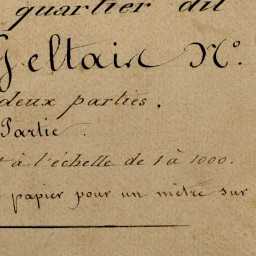 quartier dit
Geltair N.º
deux parties.
Partie.
à l'échelle de 1 à 1000.
papier pour un mètre sur